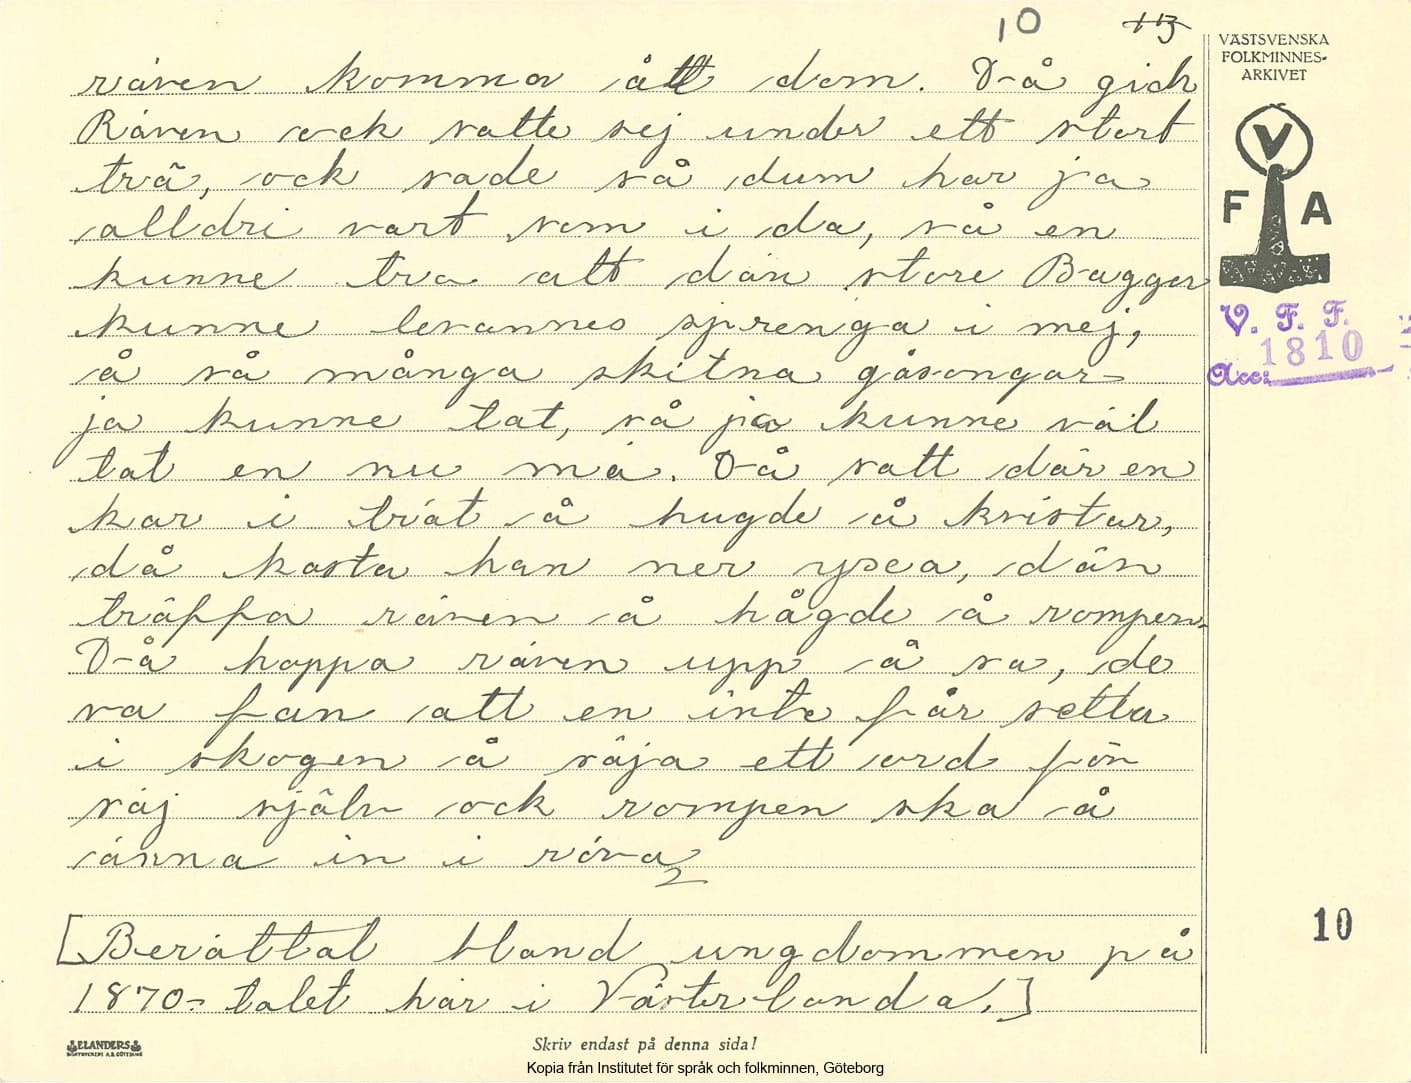 10 13
VÄSTSVENSKA
FOLKMINNES-
ARKIVET
räven komma ått dom. Då gick
Räven ock satte sej under ett stort
trä, ock sade så dum har ja
alldri vart som i da, så en
kunne tro att dän store Baggen
kunne levannes sprenga i mej,
å så många skitna gåsongar
ja kunne tat, så ja kunne väl
tat en nu mä. Då satt där en
kar i trät å hugde å kvistar,
då kasta han ner ysea, dän
träffa räven å hågde å rompen.
Då hoppa räven upp å sa, de
va fan att en inte får setta
i skogen å säja ett ord för
säj själv ock rompen ska å
änna in i röva
[Berättat bland ungdommen på
1870-talet här i Västerlanda.]
V
F A
V. F. F.
Acc: 1810
10
ELANDERS
Skriv endast på denna sida!
Kopia från Institutet för språk och folkminnen, Göteborg